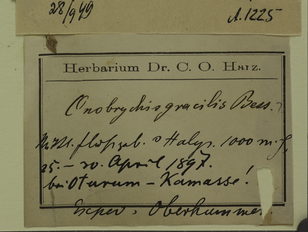 28/9 49
A. 1225
Herbarium Dr. C. O. Harz.
Onobrychis gracilis Bess.
Halys. 1000 m.
25.–20. April 1897.
bei Oturum – Kamasse!
Oberhummer